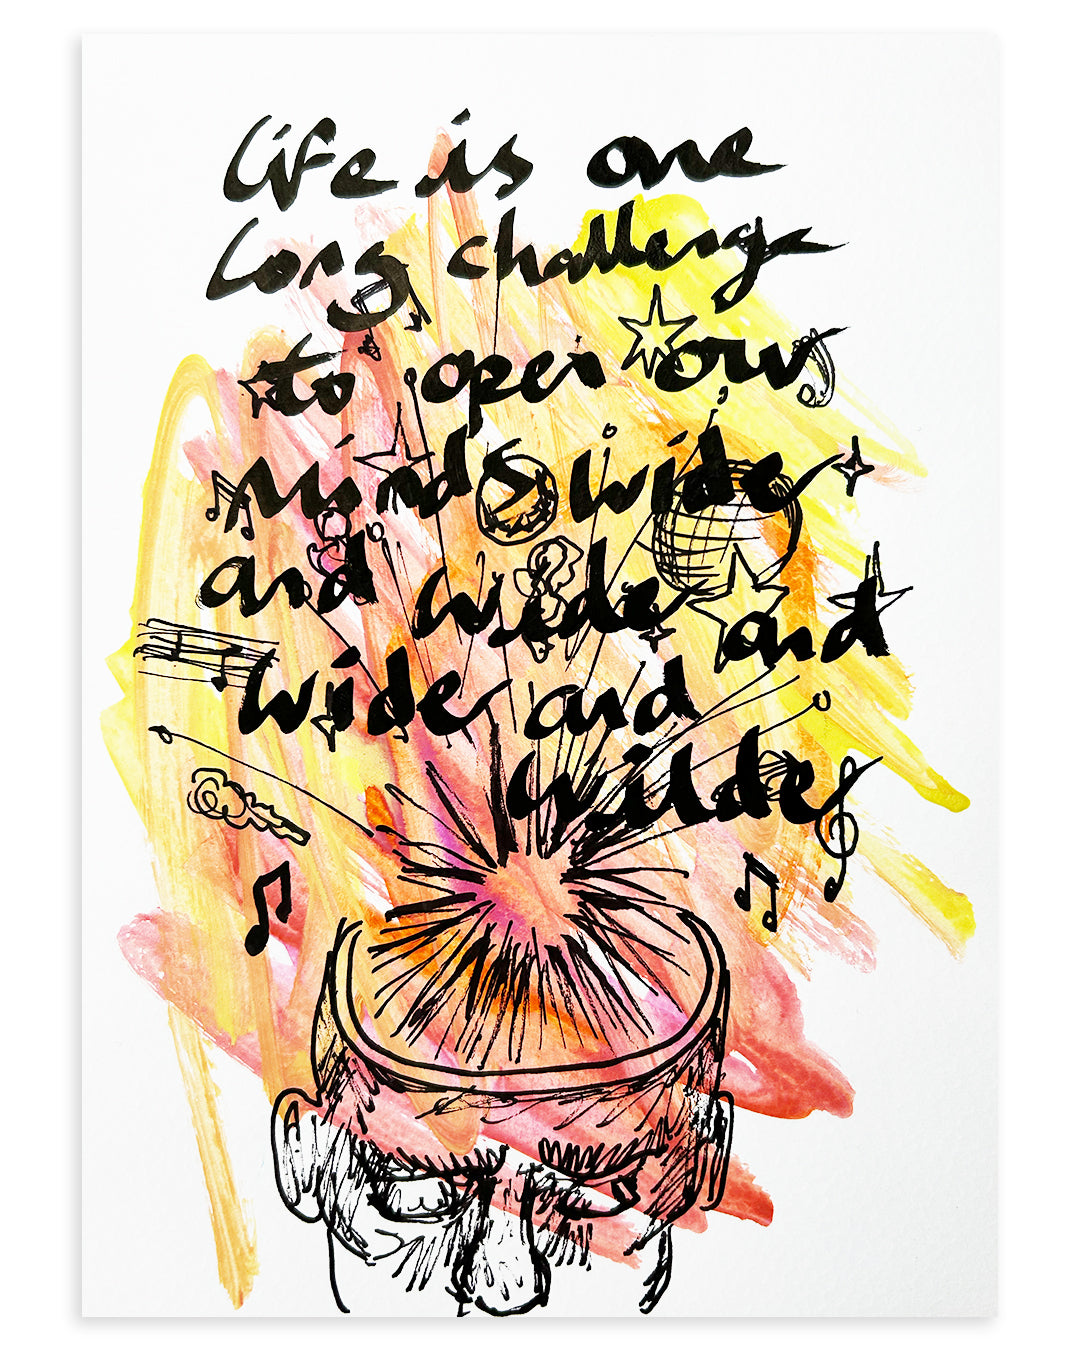 Life is one
long challenge
to open our
minds wide
and wide and
wide and
wilde